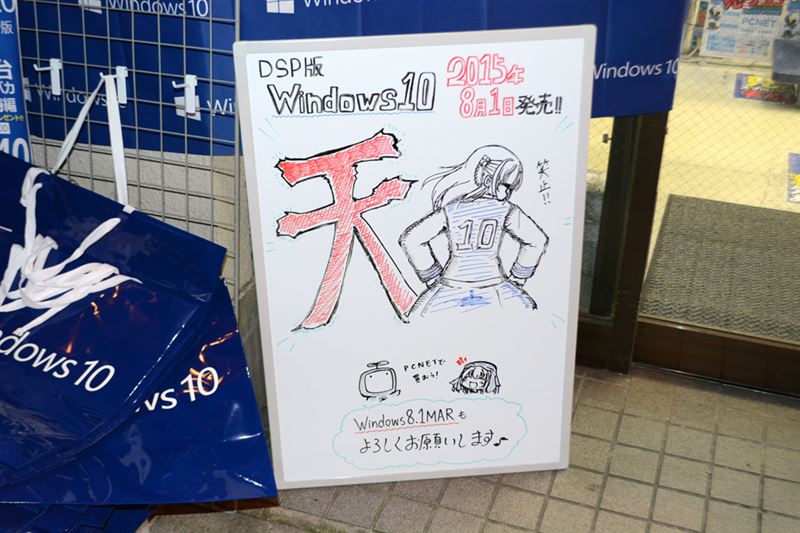 Windows 10
Windows 10
DSP版
Windows10
2015年
8月1日発売!!
天
笑止!!
10
PCNETで
買おう!
Windows8.1MARも
よろしくお願いします♪
Windows 10
PCNET
Windows 10